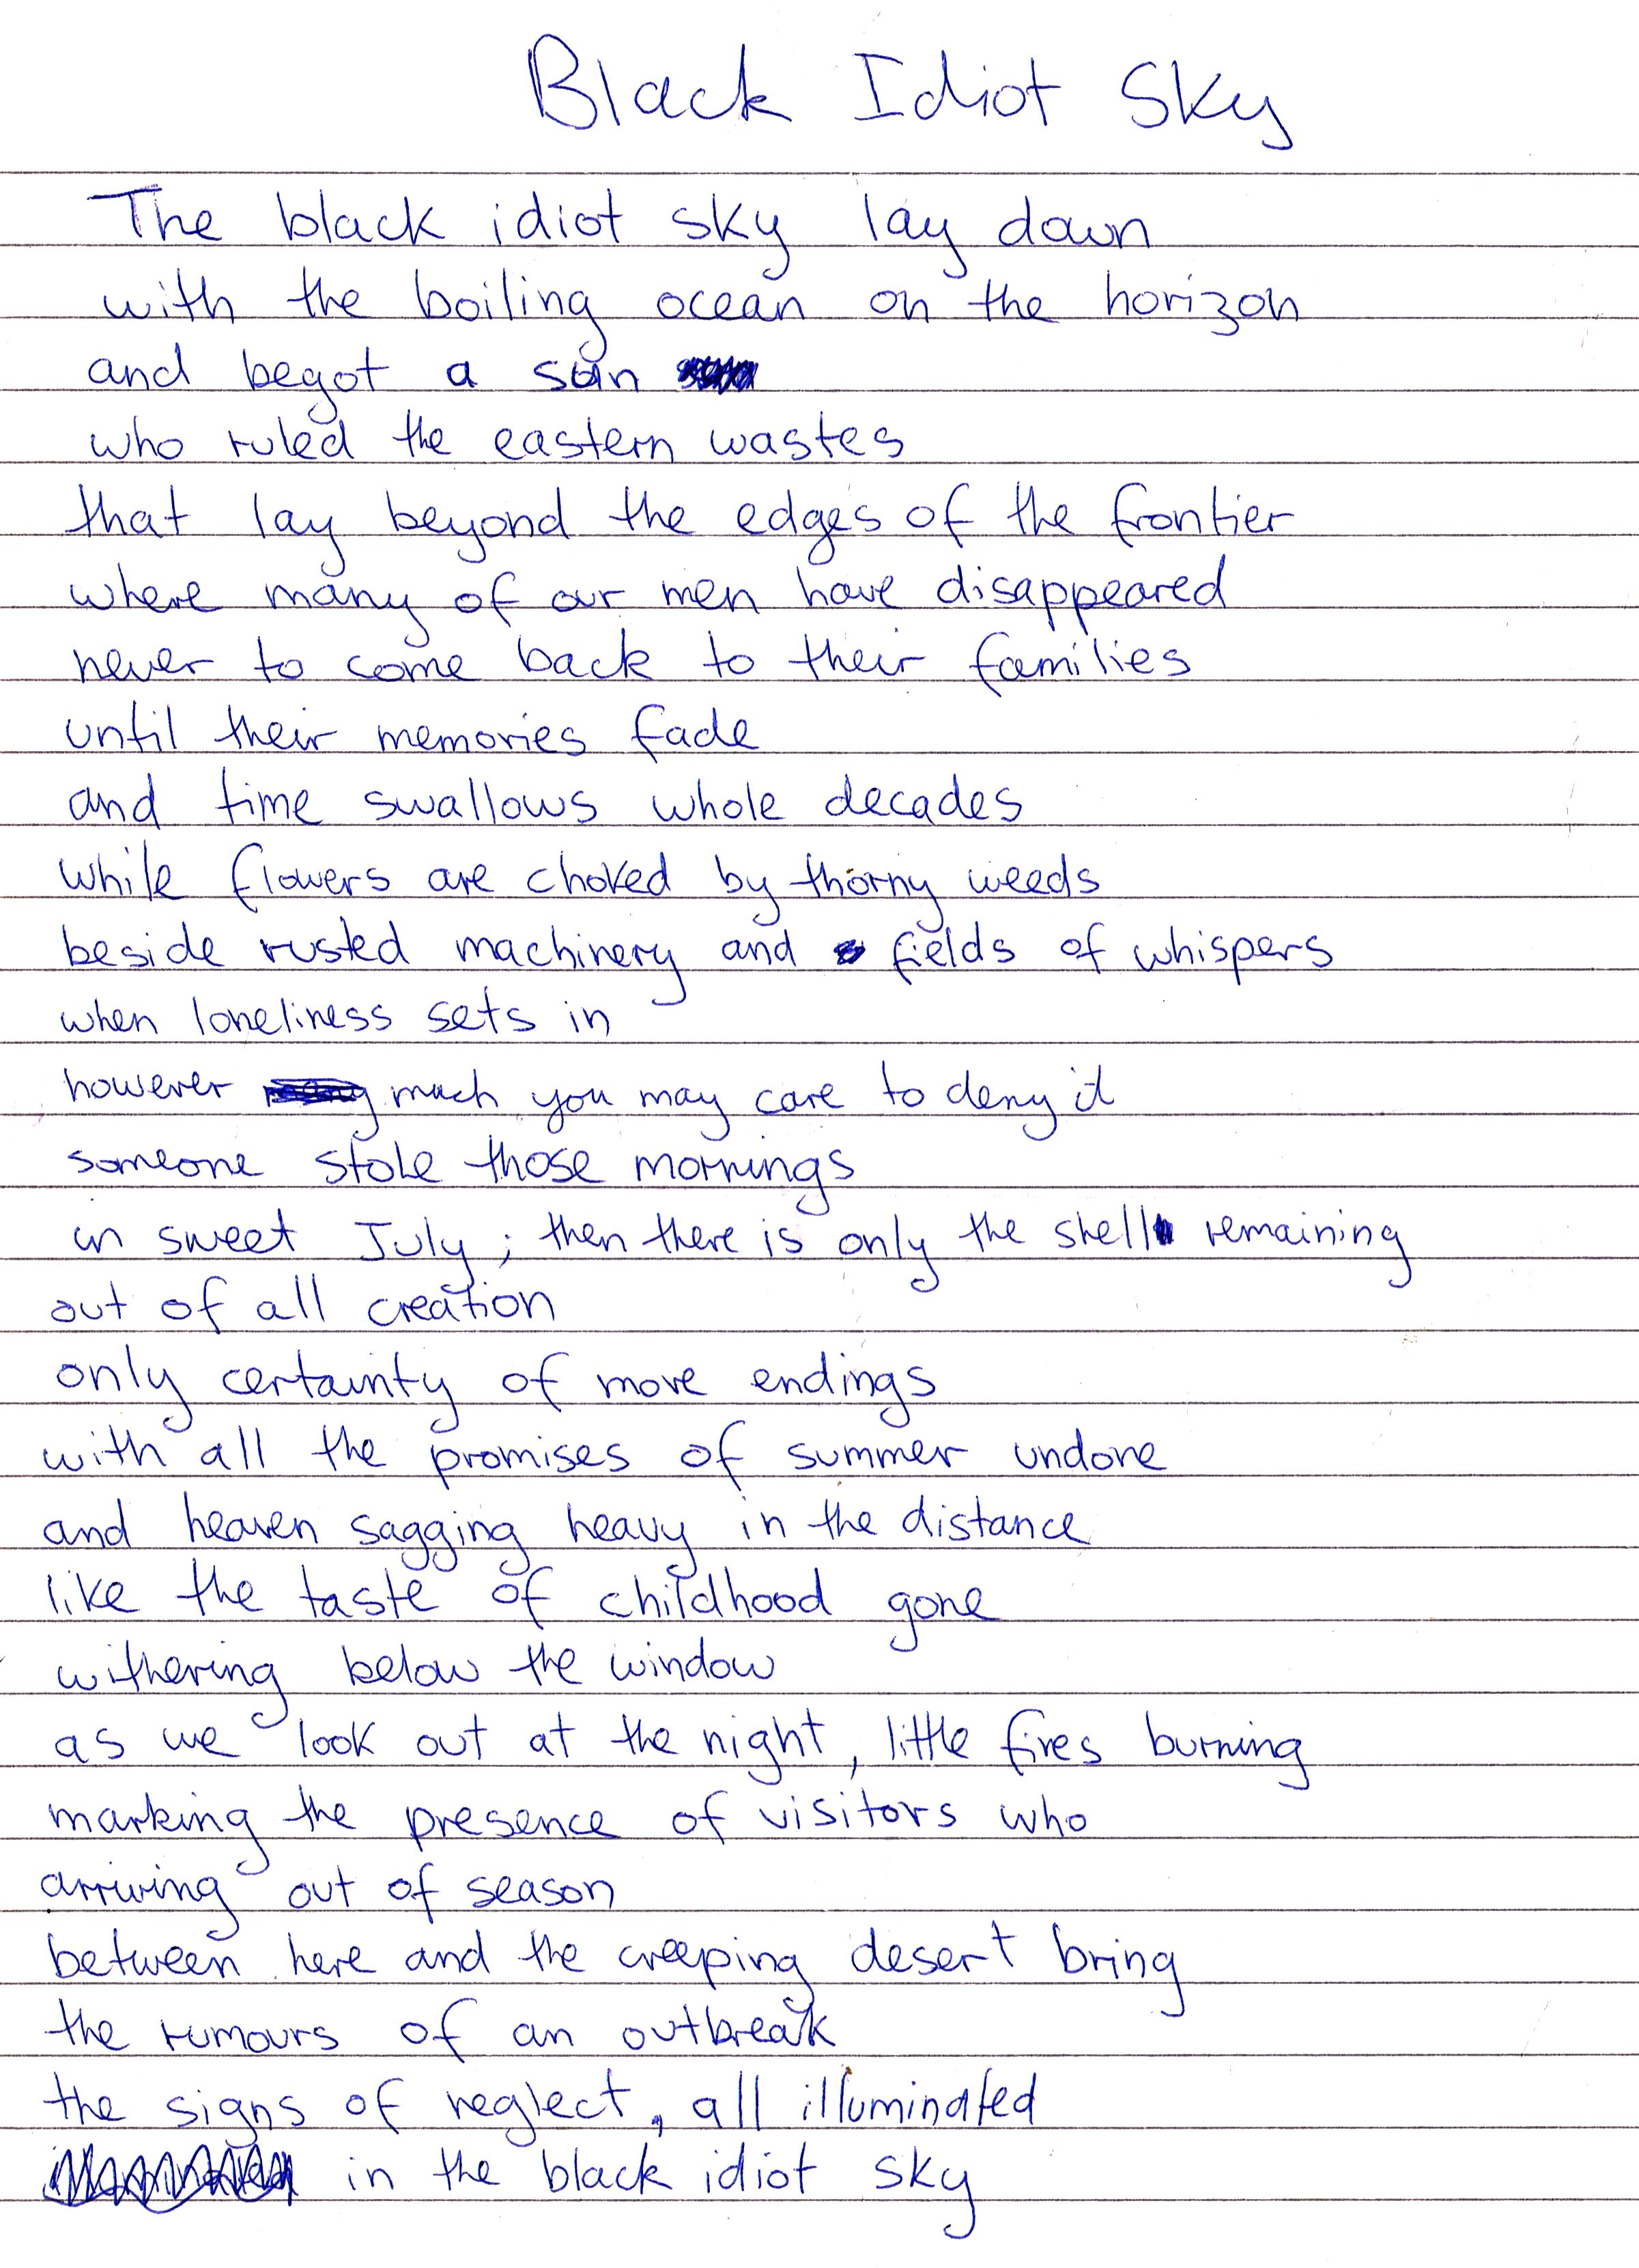 Black Idiot Sky
The black idiot sky lay down
with the boiling ocean on the horizon
and begot a sun
who ruled the eastern wastes
that lay beyond the edges of the frontier
where many of our men have disappeared
never to come back to their families
until their memories fade
and time swallows whole decades
while flowers are choked by thorny weeds
beside rusted machinery and fields of whispers
when loneliness sets in
however much you may care to deny it
someone stole those mornings
in sweet July; then there is only the shell remaining
out of all creation
only certainty of more endings
with all the promises of summer undone
and heaven sagging heavy in the distance
like the taste of childhood gone
withering below the window
as we look out at the night, little fires burning
marking the presence of visitors who
arriving out of season
between here and the creeping desert bring
the rumours of an outbreak
the signs of neglect, all illuminated
in the black idiot sky